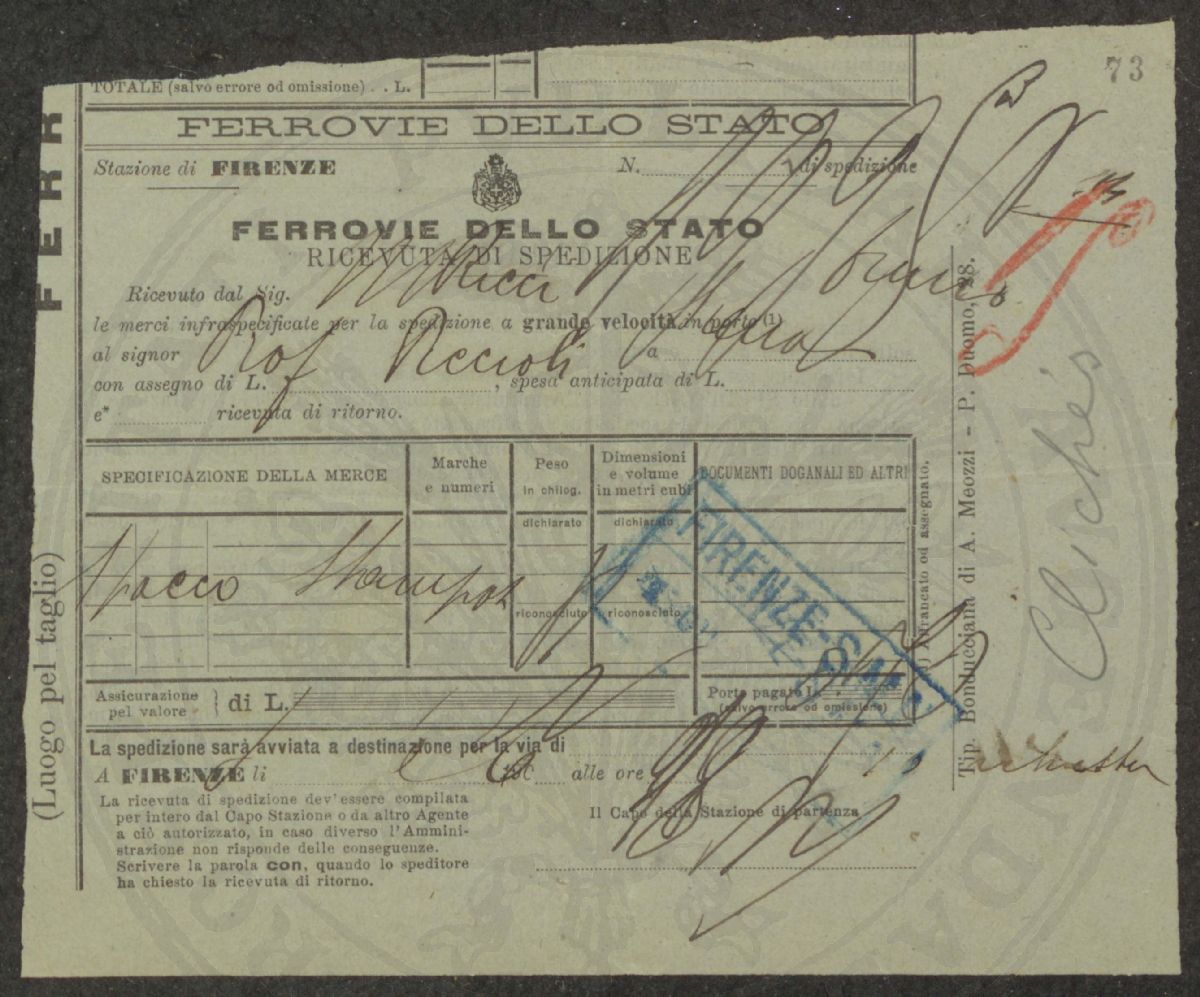 73
TOTALE (salvo errore od omissione) . . L.
FERROVIE DELLO STATO
Stazione di FIRENZE N. di spedizione
FERROVIE DELLO STATO
RICEVUTA DI SPEDIZIONE
Ricevuto dal Sig. Ricci
le merci infraspecificate per la spedizione a grande velocità in porto (1)
al signor Prof Riccioli a
con assegno di L. , spesa anticipata di L.
e* ricevuta di ritorno.
SPECIFICAZIONE DELLA MERCE
Marche e numeri
Peso in chilog.
Dimensioni e volume in metri cubi
DOCUMENTI DOGANALI ED ALTRI
dichiarato dichiarato
pacco stampe
riconosciuto riconosciuto
FIRENZE
Assicurazione pel valore } di L.
Porto pagato L.
(salvo errore od omissione)
La spedizione sarà avviata a destinazione per la via di
A FIRENZE li 190 alle ore
La ricevuta di spedizione dev'essere compilata
per intero dal Capo Stazione o da altro Agente
a ciò autorizzato, in caso diverso l'Ammini-
strazione non risponde delle conseguenze.
Scrivere la parola con, quando lo speditore
ha chiesto la ricevuta di ritorno.
Il Capo della Stazione di partenza
FERR
(Luogo pel taglio)
(1) Affrancato od assegnato.
Tip. Bonducciana di A. Meozzi - P. Duomo, 28.
Clichés